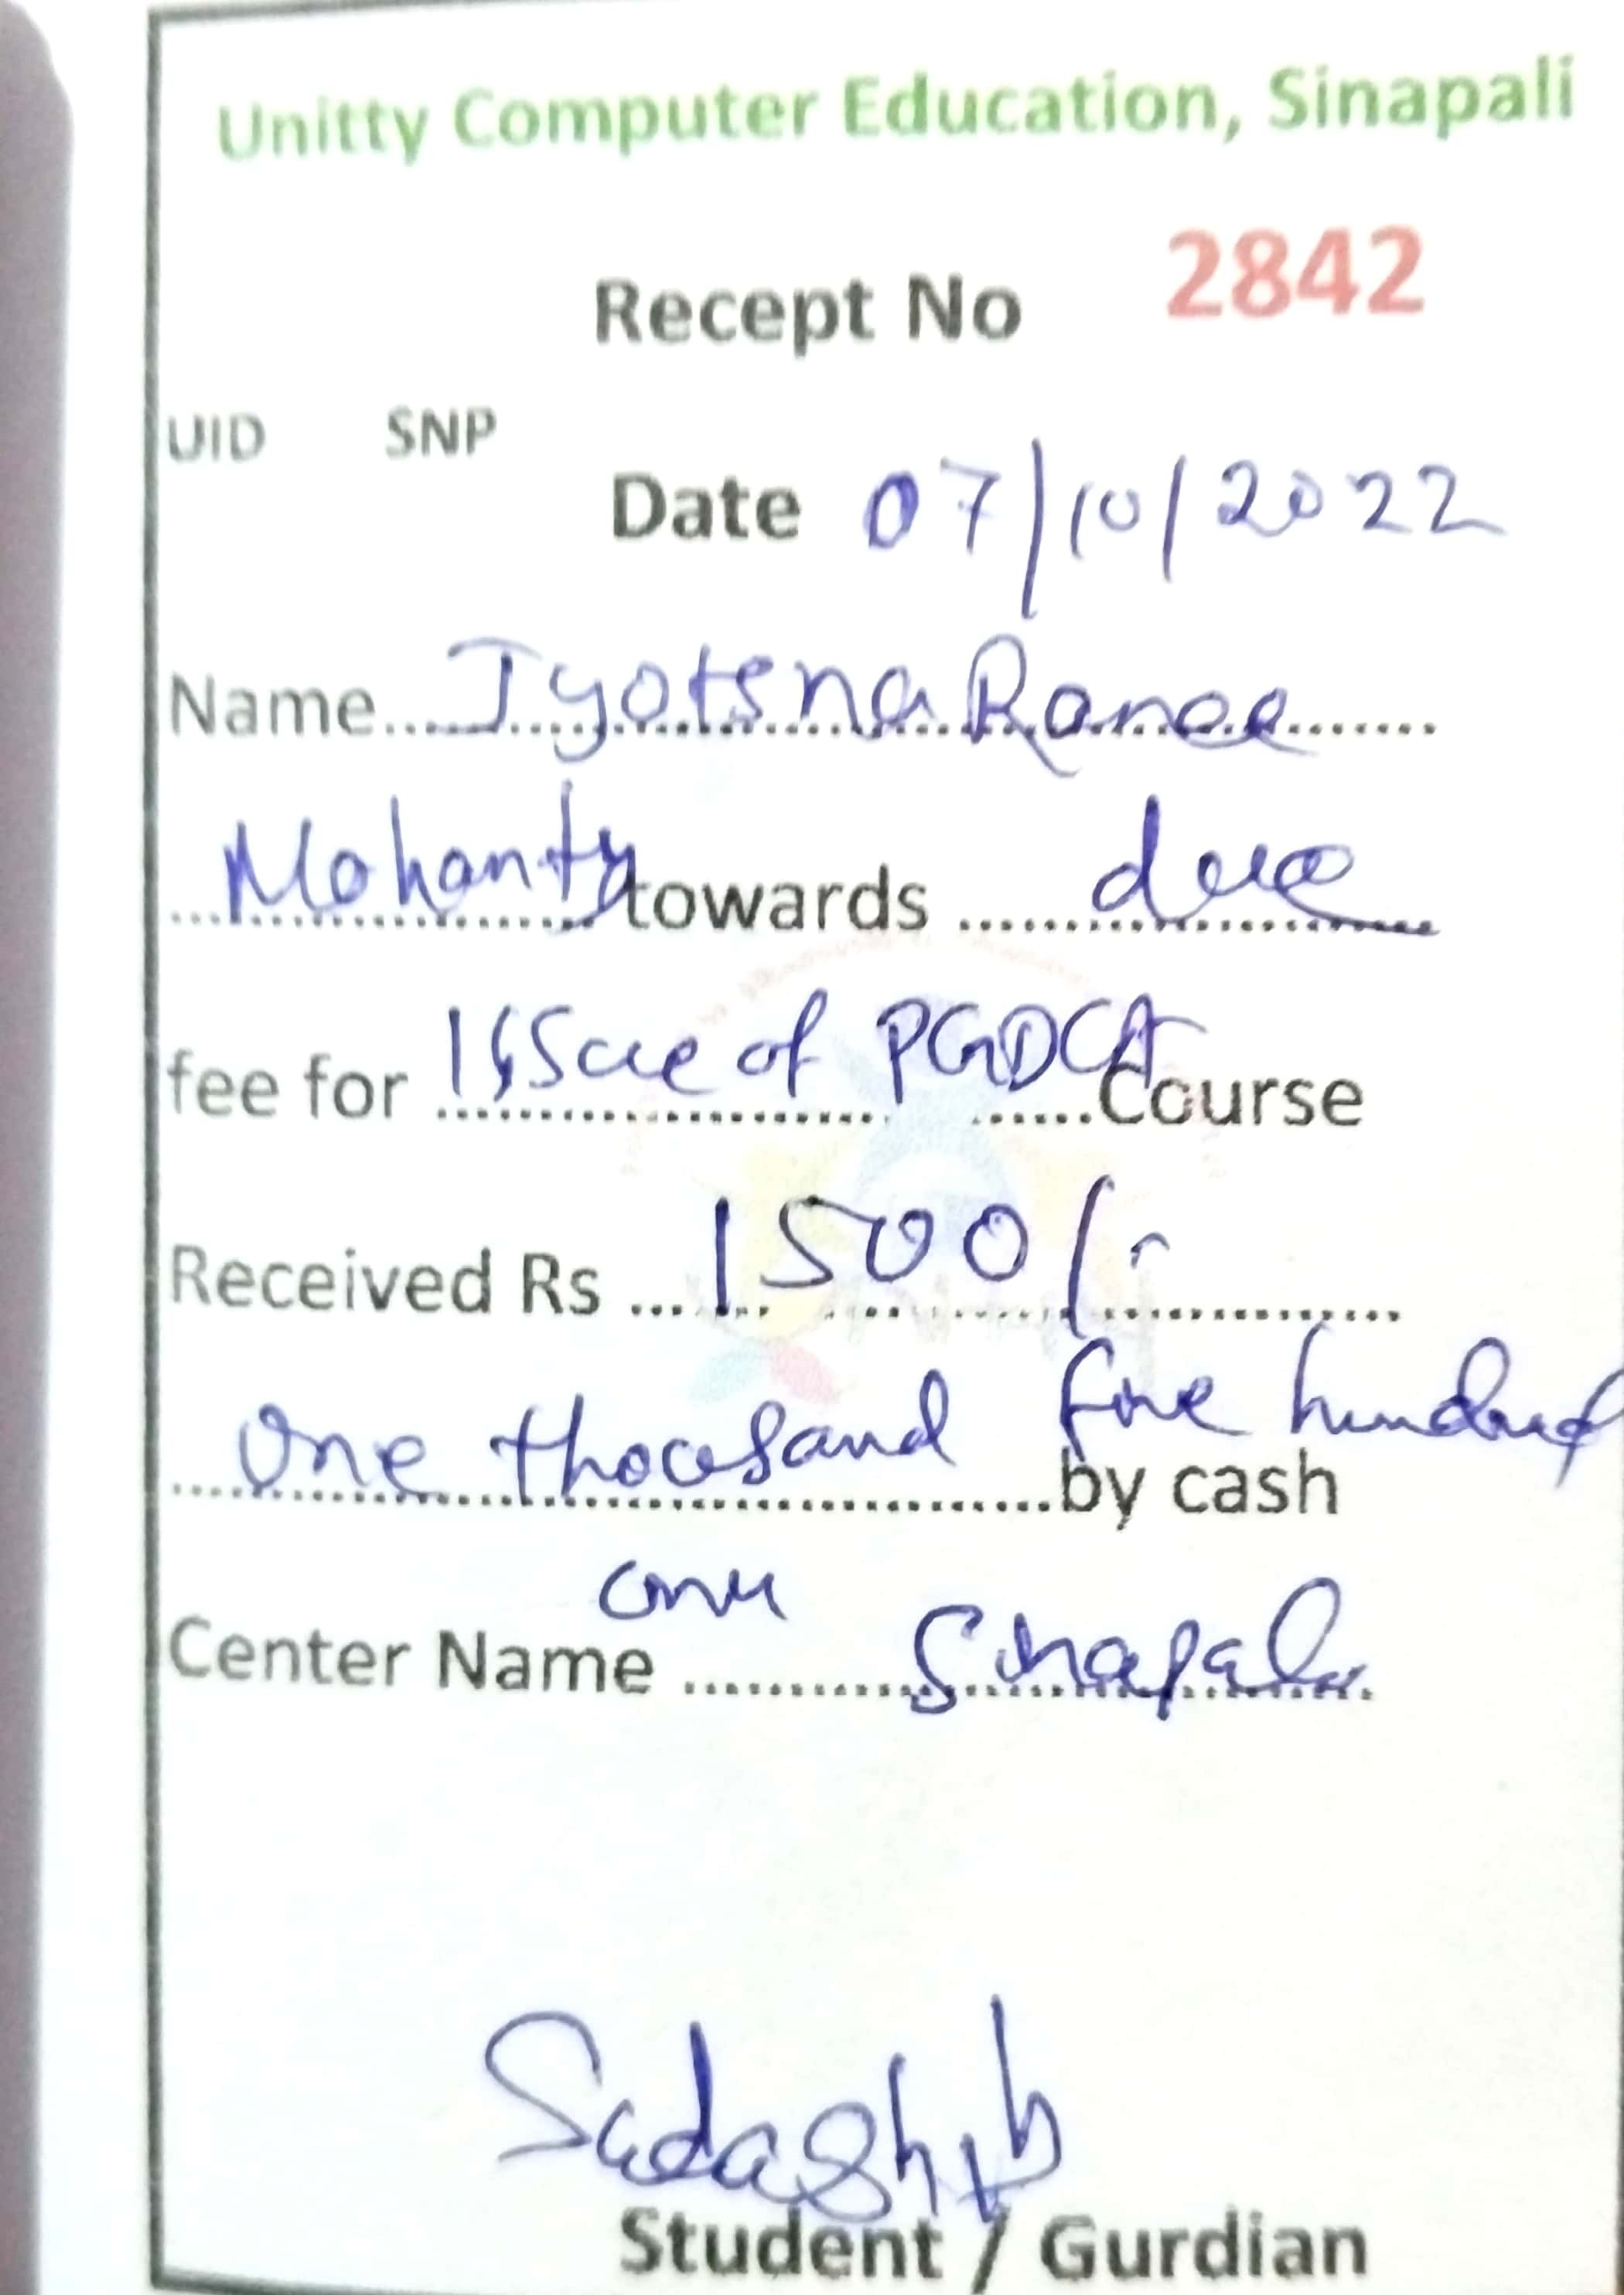 Unitty Computer Education, Sinapali
Recept No 2842
UID SNP
Date 07/10/2022
Name Jyotsna Ranee
Mohanty towards due
fee for Issue of PGDCA Course
Received Rs 1500/-
One thousand five hundred
by cash
only
Center Name Sinapali
Sadashib
Student / Gurdian